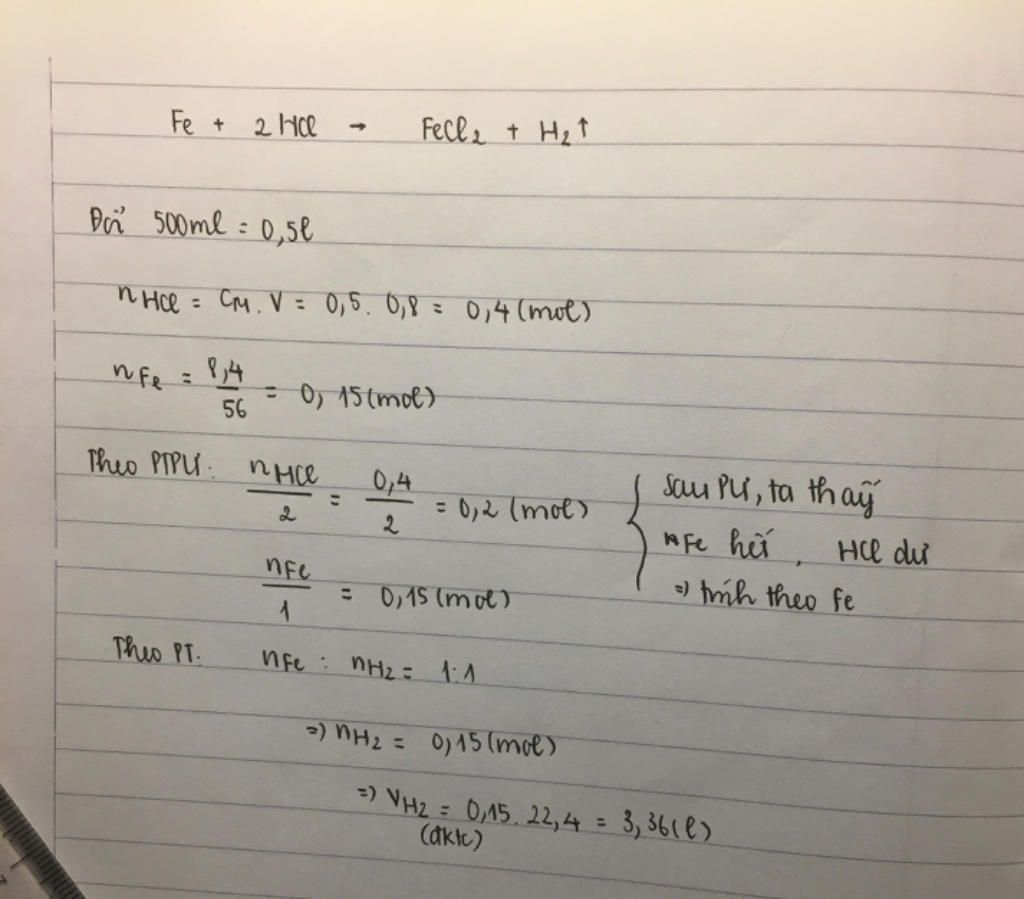 Fe + 2HCl → FeCl₂ + H₂↑
Đổi 500ml = 0,5l
nHCl = CM. V = 0,5. 0,8 = 0,4 (mol)
nFe = 8,4/56 = 0,15 (mol)
Theo PTPƯ: nHCl/2 = 0,4/2 = 0,2 (mol)
nFe/1 = 0,15 (mol)
{ sau PƯ, ta thấy
nFe hết, HCl dư
=) tính theo Fe
Theo PT. nFe : nH₂ = 1:1
=) nH₂ = 0,15 (mol)
=) VH₂ = 0,15. 22,4 = 3,36 (l)
(đktc)